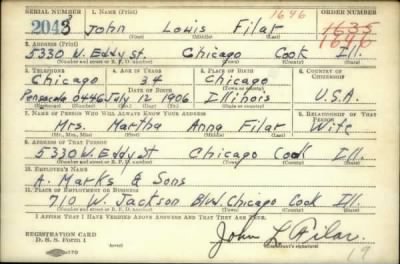 SERIAL NUMBER 1. NAME (Print) 1646 ORDER NUMBER
2043 John Louis Filar 1635
(First) (Middle) (Last) 1646
2. ADDRESS (Print)
5330 W. Eddy St. Chicago Cook Ill.
(Number and street or R. F. D. number) (Town) (County) (State)
3. TELEPHONE 4. AGE IN YEARS 5. PLACE OF BIRTH 6. COUNTRY OF CITIZENSHIP
Chicago 34 Chicago
DATE OF BIRTH (Town or county)
Pensacola 0446 July 12 1906 Illinois U.S.A.
(Exchange) (Number) (Mo.) (Day) (Yr.) (State or country)
7. NAME OF PERSON WHO WILL ALWAYS KNOW YOUR ADDRESS 8. RELATIONSHIP OF THAT PERSON
Mrs. Martha Anna Filar Wife
(Mr., Mrs., Miss) (First) (Middle) (Last)
9. ADDRESS OF THAT PERSON
5330 W. Eddy St Chicago Cook Ill.
(Number and street or R. F. D. number) (Town) (County) (State)
10. EMPLOYER'S NAME
A. Marks & Sons
11. PLACE OF EMPLOYMENT OR BUSINESS
710 W. Jackson Blvd. Chicago Cook Ill.
(Number and street or R. F. D. number) (Town) (County) (State)
I AFFIRM THAT I HAVE VERIFIED ABOVE ANSWERS AND THAT THEY ARE TRUE.
REGISTRATION CARD
D. S. S. Form 1 John L Filar
(Registrant's signature)